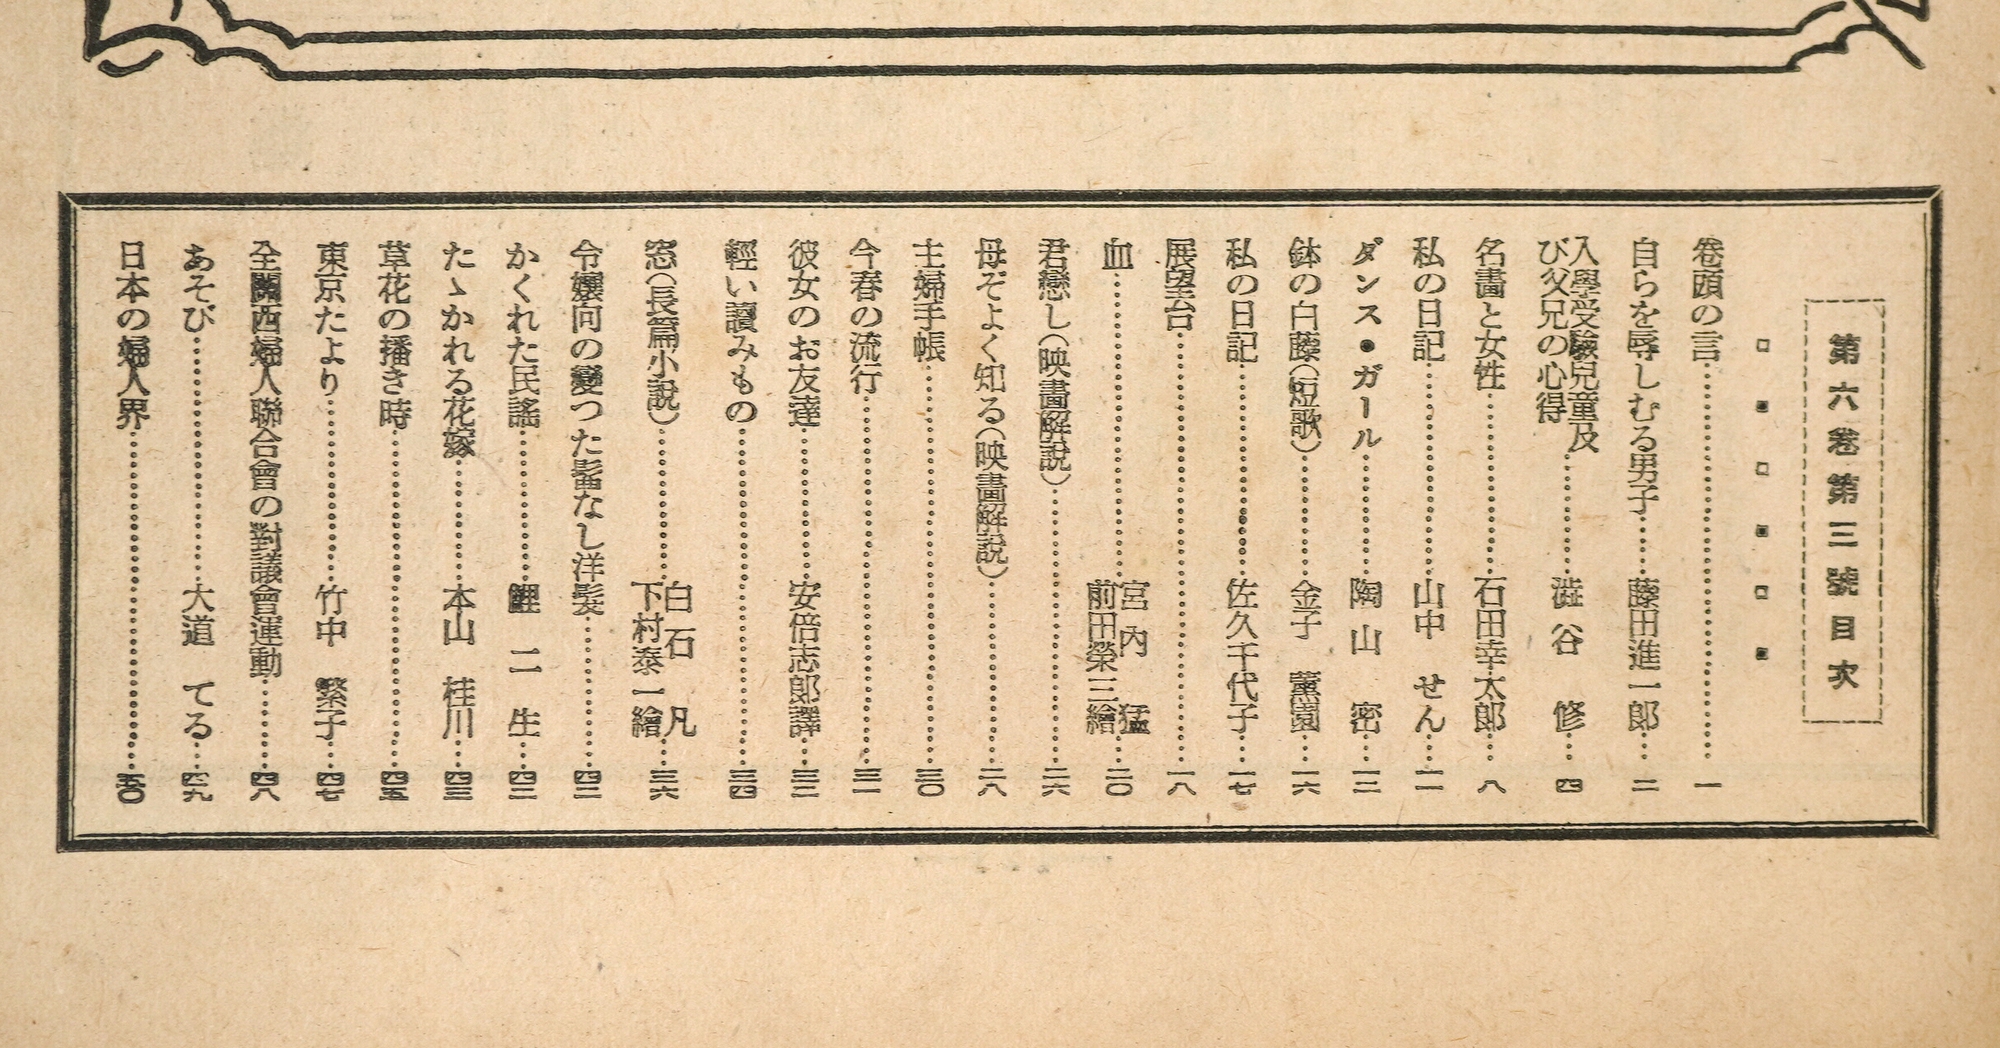 第六卷第三號目次
卷頭の言……一
自らを辱しむる男子……藤田進一郎……二
入學受驗兒童及
び父兄の心得……澁谷修……四
名畵と女性……石田幸太郎……八
私の日記……山中せん……一一
ダンス・ガール……陶山密……一三
鉢の白藤(短歌)……金子薫園……一六
私の日記……佐久千代子……一七
展望台……一八
血……宮内猛
前田榮三繪……二〇
君戀し(映畵解説)……二六
母ぞよく知る(映畵解説)……二八
主婦手帳……三〇
今春の流行……三一
彼女のお友達……安倍志郎譯……三二
輕い讀みもの……三四
窓(長篇小説)……白石凡
下村泰一繪……三六
令孃向の變つた髷なし洋髮……四二
かくれた民謠……鯉二生……四三
たゝかれる花嫁……本山桂川……四三
草花の播き時……四五
東京たより……竹中繁子……四七
全關西婦人聯合會の對議會運動……四八
あそび……大道てる……四九
日本の婦人界……五〇